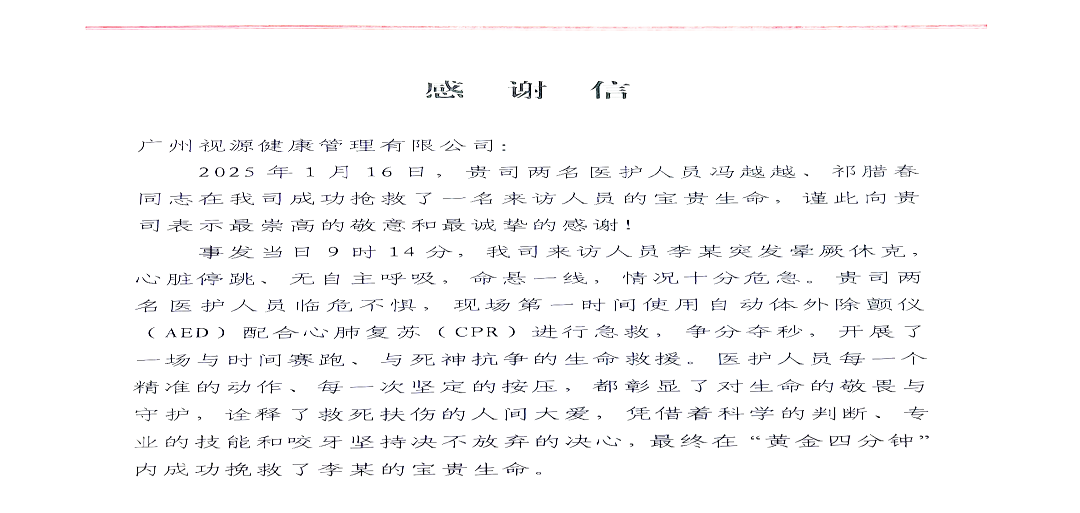 感谢信
广州视源健康管理有限公司：
2025年1月16日，贵司两名医护人员冯越越、祁腊春
同志在我司成功抢救了一名来访人员的宝贵生命，谨此向贵
司表示最崇高的敬意和最诚挚的感谢！
事发当日9时14分，我司来访人员李某突发晕厥休克，
心脏停跳、无自主呼吸，命悬一线，情况十分危急。贵司两
名医护人员临危不惧，现场第一时间使用自动体外除颤仪
（AED）配合心肺复苏（CPR）进行急救，争分夺秒，开展了
一场与时间赛跑、与死神抗争的生命救援。医护人员每一个
精准的动作、每一次坚定的按压，都彰显了对生命的敬畏与
守护，诠释了救死扶伤的人间大爱，凭借着科学的判断、专
业的技能和咬牙坚持决不放弃的决心，最终在“黄金四分钟”
内成功挽救了李某的宝贵生命。